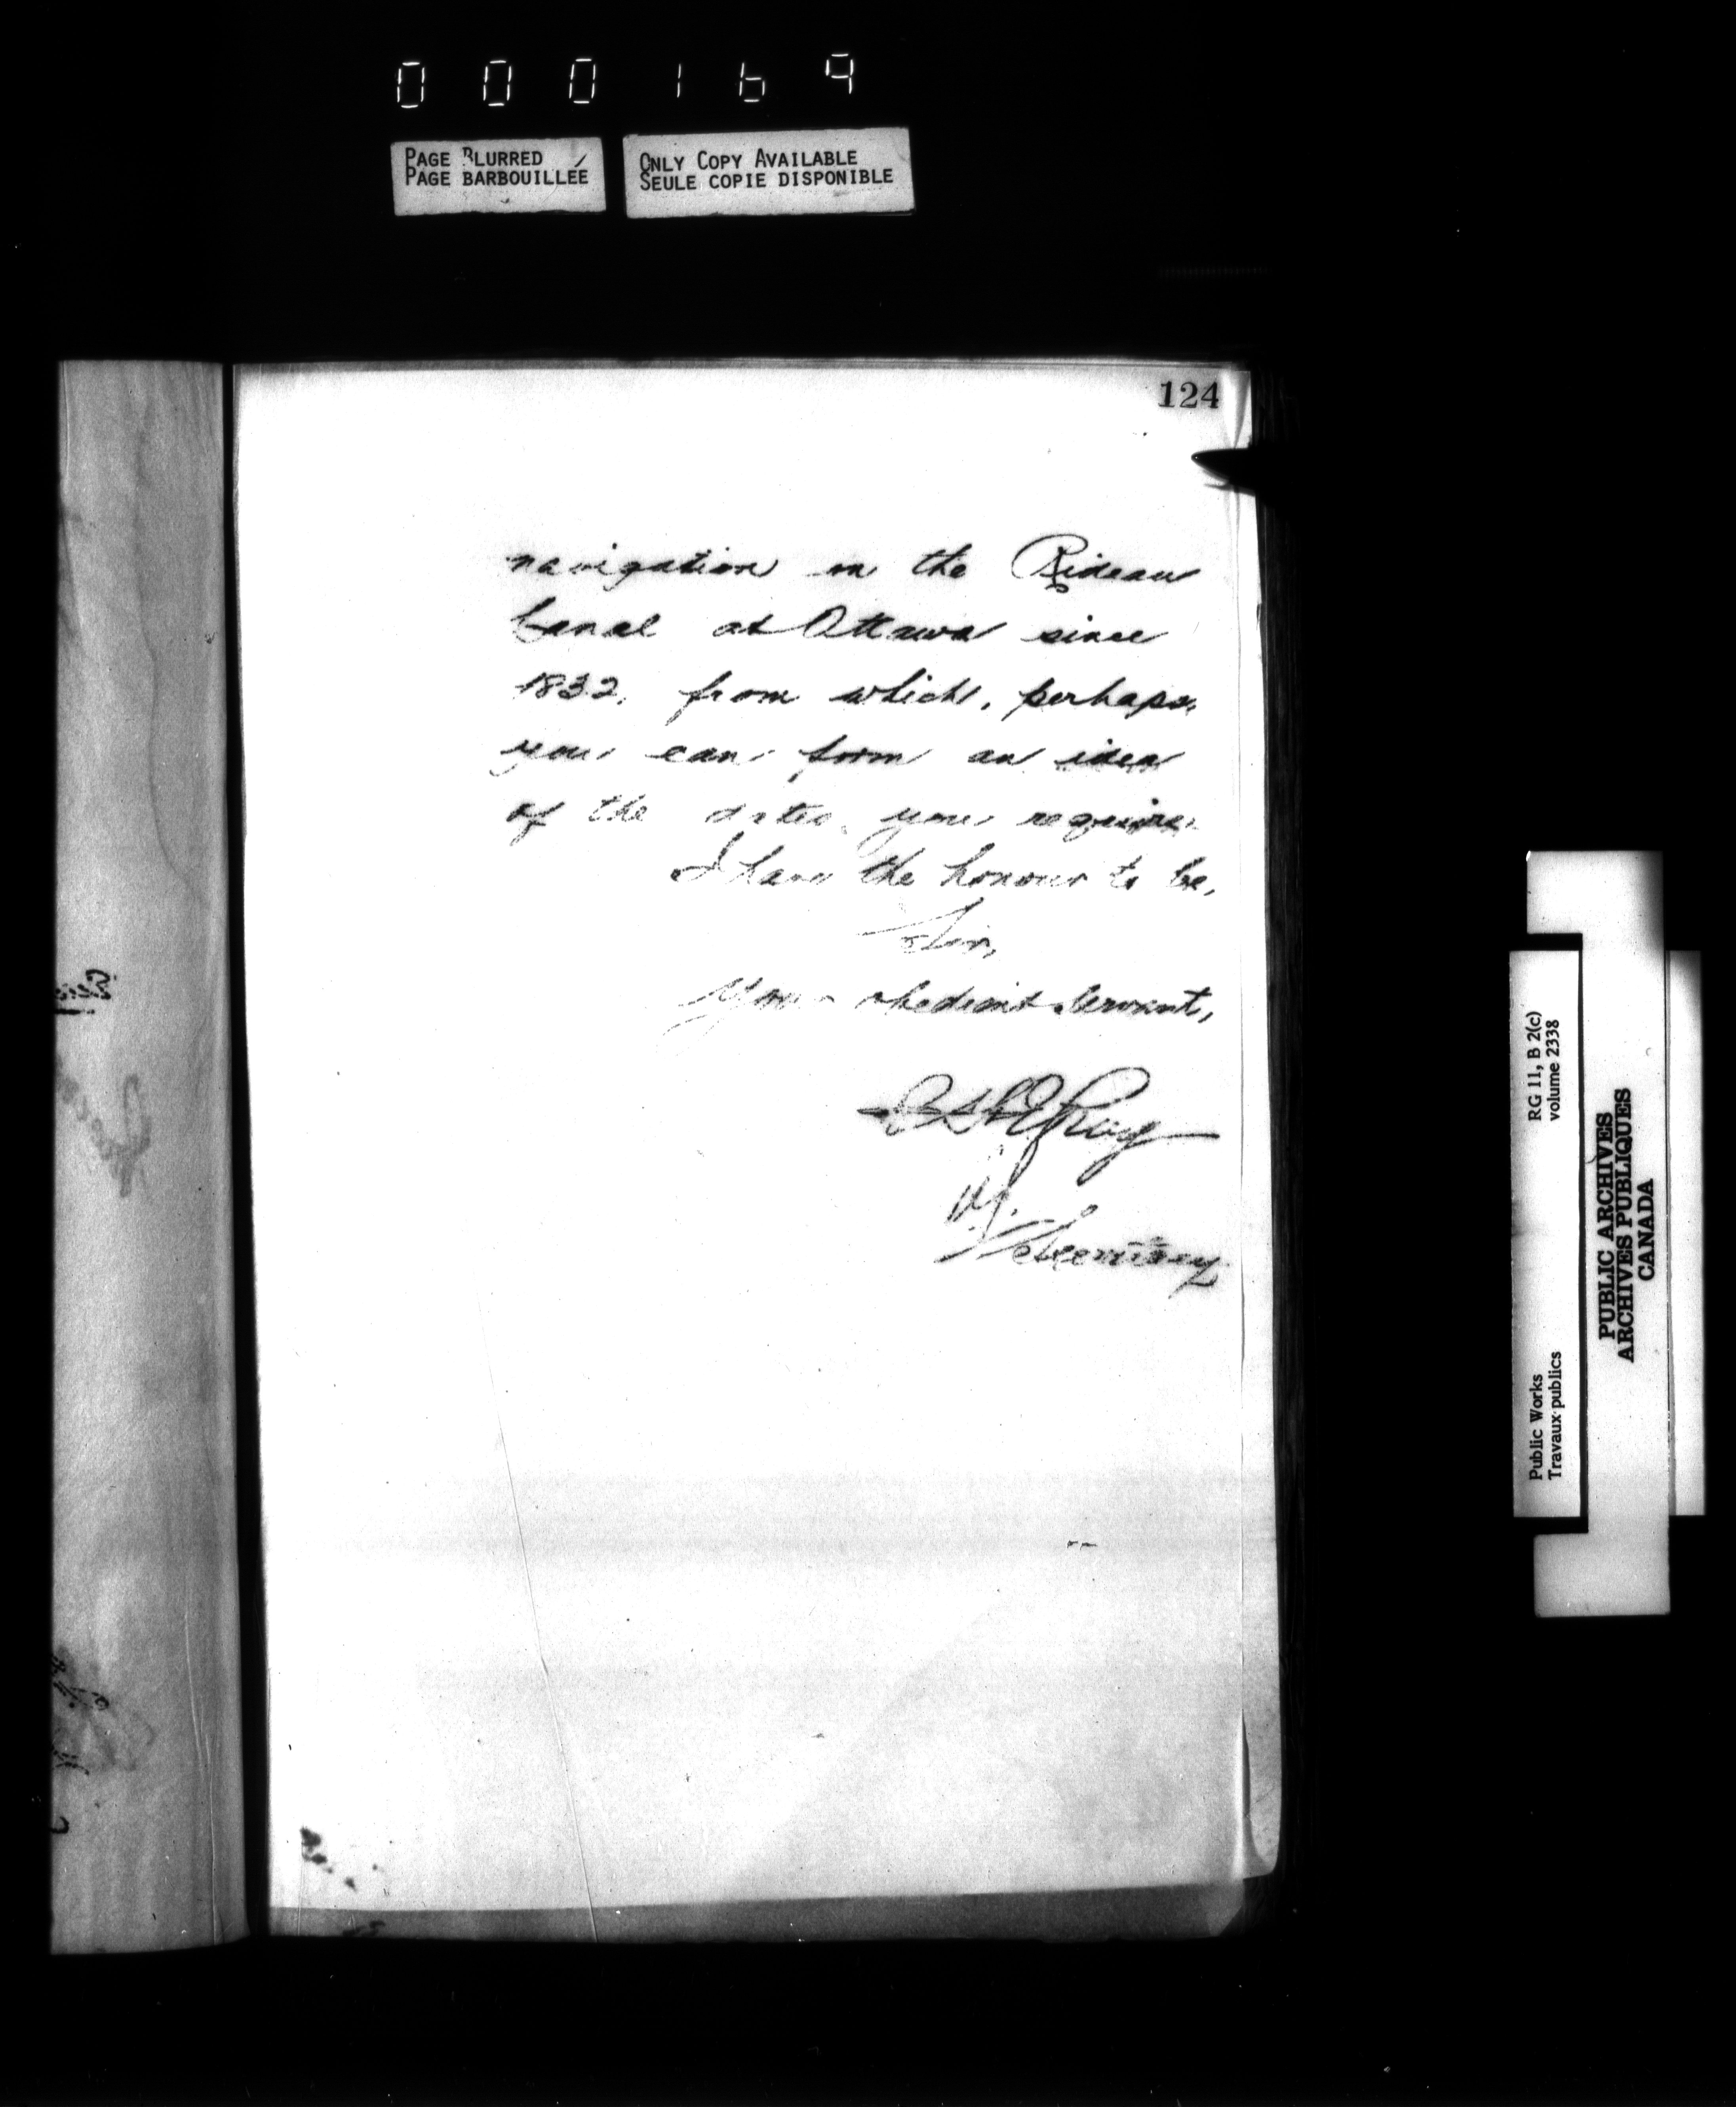 000169
PAGE BLURRED
PAGE BARBOUILLÉE
ONLY COPY AVAILABLE
SEULE COPIE DISPONIBLE
124
navigation on the Rideau
Canal at Ottawa since
1832, from which, perhaps,
you can form an idea
of the dates you require.
I have the honour to be,
Sir,
Your obedient Servant,
Roy
Secretary
RG 11, B 2(c)
volume 2338
Public Works
Travaux publics
PUBLIC ARCHIVES
ARCHIVES PUBLIQUES
CANADA